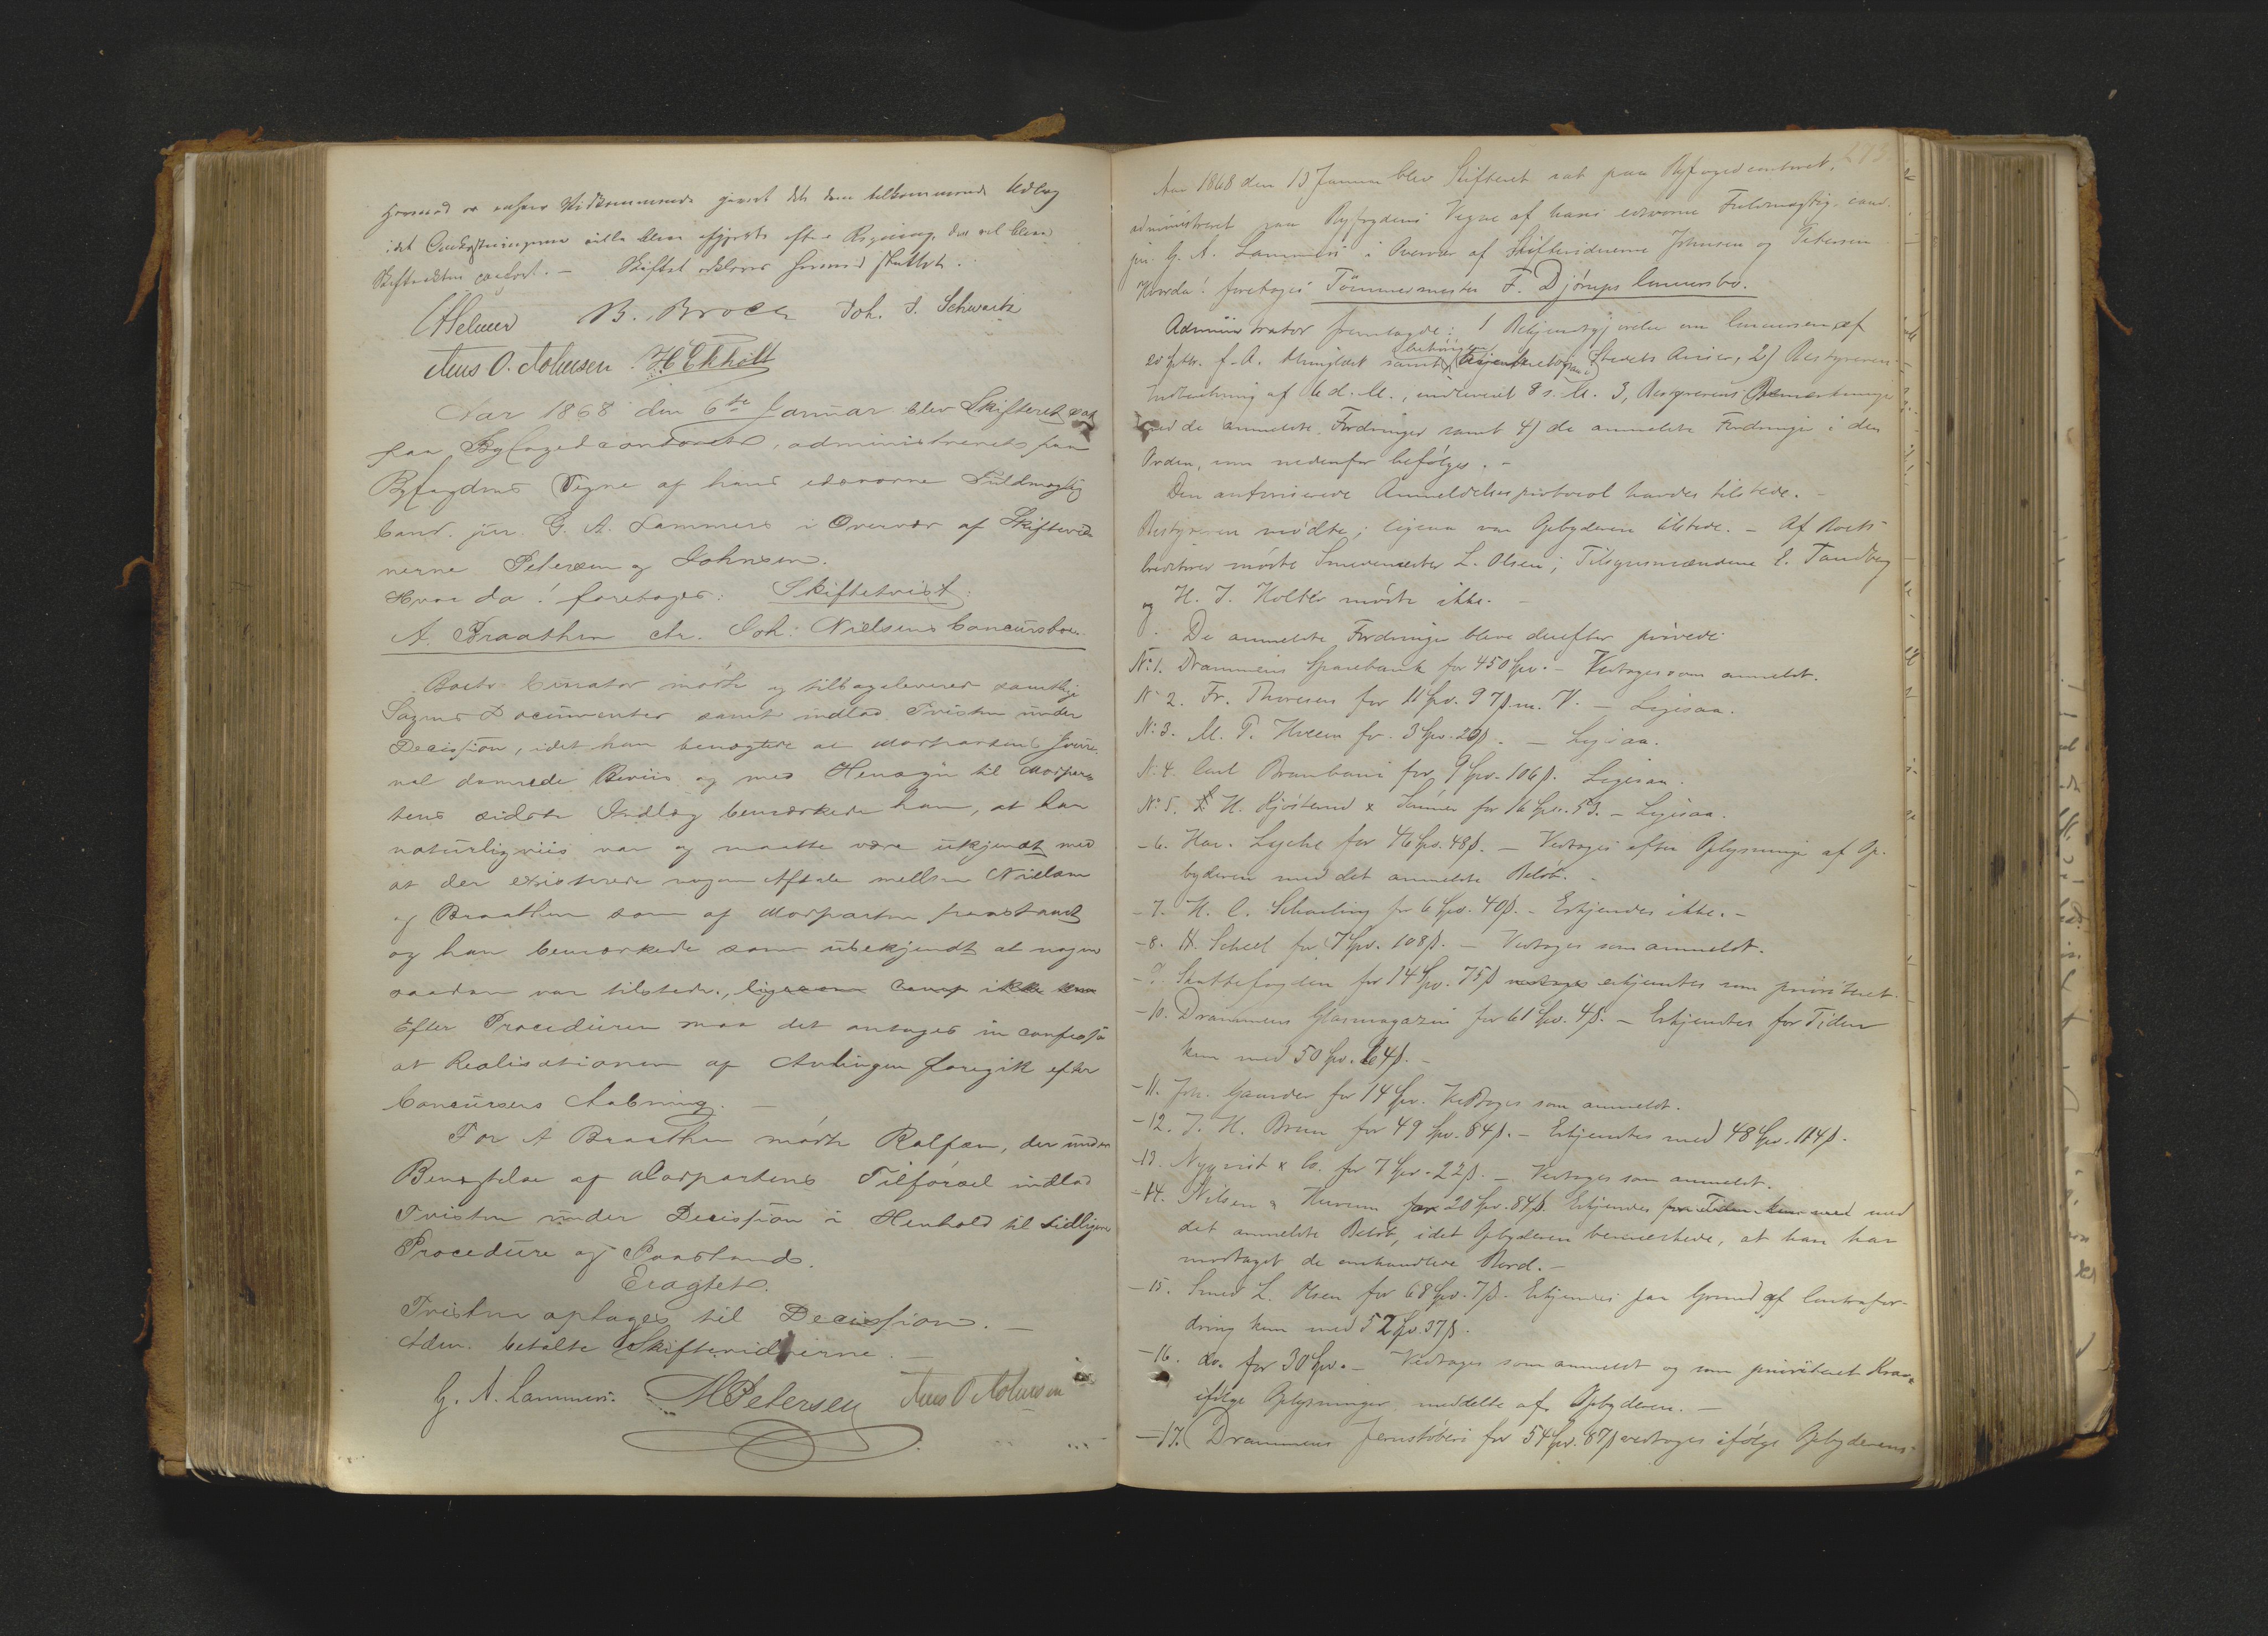 Hermed er enhver Vedkommende givet det dem tilkommende Udlæg
idet Omkostningerne ville blive afgjorte efter Regning, der vil blive
Skifteakten paaført. – Skiftet erklæres hermed sluttet.
B. Broch Joh. J. Schwartz
Jens O. Johnsen. H Ekholt
Aar 1868 den 6te Januar blev Skifteret sat
paa Byfogedcontoret, administreret paa
Byfogdens Vegne af hans edsvorne Fuldmægtig
Cand. jur. G. A. Lammers i Overvær af Skiftevid-
nerne Petersen og Johnsen.
Hvor da! foretoges: Skiftetvist:
A. Braathen ctr. Joh: Nielsens Concursbo.
Boets Curator mødte og tilbageleverede samtlige
Sagens Documenter samt indlod Tvisten under
Decision, idet han benægtede at Modpartens
dannede Beviis og med Hensyn til Modpar-
tens sidste Indlæg bemærkede han, at han
naturligviis var og maatte være ukjendt med
at der existerede nogen Aftale mellem Nielsen
og Braathen som af Modparten paastaaet
og han bemærkede som ubekjendt at nogen
saadan var tilstede, ligesom
Efter Proceduren maa det antages in confesso
at Realisationen af Avlingen foregik efter
Concursens Aabning. –
For A Braathen mødte Rolfsen, der under
Benægtelse af Modpartens Tilførsel indlod
Tvisten under Decission i Henhold til tidligere
Procedure og Paastand.
Eragtet.
Tvisten optages til Decission. –
Adm. betalte Skiftevidnerne. –
G. A. Lammers. M Petersen Jens O Johnsen
275
Aar 1868 den 13 Januar blev Skifteret sat paa Byfogedcontoret,
administreret paa Byfogdens Vegne af hans edsvorne Fuldmægtig cand.
jur. G. A. Lammers i Overvær af Skiftevidnerne Johnsen og Petersen
Hvorda! foretoges Tømmermester F. Djørups Concursbo.
Administrator fremlagde: 1 Bekjendtgjørelse om Concursen af
samt Stedets Aviser, 2) Bestyrerens
Indberetning af 6 d. M., indleveret 8 s. M. 3, Bestyrerens Bemærkninger
ved de anmeldte Fordringer samt 4) de anmeldte Fordringer i den
Orden, som nedenfor befølges. –
Den autoriserede Anmeldelsesprotocol havdes tilstede. –
Bestyreren mødte; ligesaa var Opbyderen tilstede. – Af Boets
Creditorer mødte Smedemester L. Olsen; Tilsynsmændene E. Tandberg
og H. J. Holter mødte ikke. –
De anmeldte Fordringer bleve derefter prøvede
No 1. Drammens Sparebank for 450 Spd. – Vedtages som anmeldt.
No 2. Fr. Thoresen for 11 Spd. 97 ß m. V. – Ligesaa.
No 3. M. P. Hveem for 3 Spd. 20 ß. – Ligesaa.
No 4. Carl Brambani for 9 Spd. 106 ß. Ligesaa.
No 5. H. Kjøsterud & Sønner for 16 Spd. 53. – Ligesaa.
– 6. Har. Lyche for 46 Spd. 48 ß. – Vedtages efter Oplysninger af Op-
byderen med det anmeldte Beløb. –
– 7. H. C. Scharling for 6 Spd. 40 ß. – Erkjendes ikke. –
– 8. H. Scheel for 7 Spd. 108 ß. – Vedtages som anmeldt.
– 9. Skattefogden for 14 Spd. 75 ß vedtages erkjendtes som prioriteret.
– 10. Drammens Glasmagazin for 61 Spd. 4 ß. – Erkjendtes for Tiden
kun med 50 Spd. 64 ß. –
– 11. Joh. Gaarder for 14 Spd. Vedtages som anmeldt.
– 12. J. H. Bruun for 49 Spd. 84 ß. – Erkjendtes med 48 Spd. 114 ß.
– 13. Nyqvist & Co. for 7 Spd. 22 ß. – Vedtages som anmeldt.
– 14. Nilsen & Hurum for 20 Spd. 84 ß. Erkjendes for Tiden kun med med
det anmeldte Beløb, idet Opbyderen bemærkede, at han har
modtaget de omhandlede Bord. –
– 15. Smed L. Olsen for 68 Spd. 7 ß. Erkjendes paa Grund af Contrafor-
dring kun med 52 Spd. 37 ß.
– 16. do. for 30 Spd. – Vedtages som anmeldt og som prioriteret Krav
ifølge Oplysninger meddelte af Opbyderen. –
– 17. Drammens Jernstøberi for 54 Spd. 87 ß vedtages ifølge Opbyderens